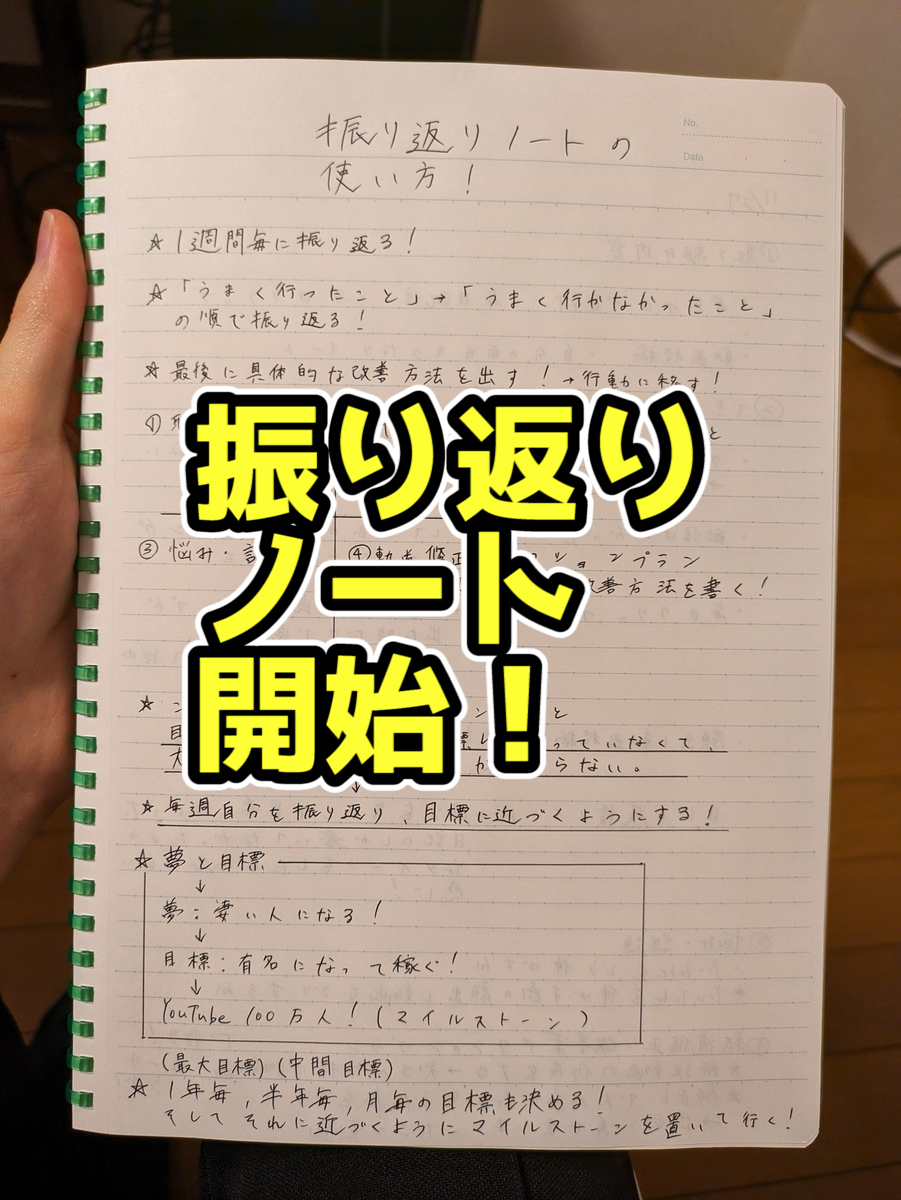 No.
Date
振り返りノートの
使い方！
☆1週間毎に振り返る！
☆「うまく行ったこと」→「うまく行かなかったこと」
の順で振り返る！
☆最後に具体的な改善方法を出す！→行動に移す！
①
と
振り返り
ノート
開始！
③悩み・
④軌道修正 ションプラン
改善方法を書く！
☆
ンと
っていなくて、
らない。
↓
☆毎週自分を振り返り、目標に近づくようにする！
☆夢と目標
↓
夢：凄い人になる！
↓
目標：有名になって稼ぐ！
↓
YouTube 100万人！(マイルストーン)
(最大目標)(中間目標)
☆1年毎,半年毎,月毎の目標も決める！
そしてそれに近づくようにマイルストーンを置いて行く！